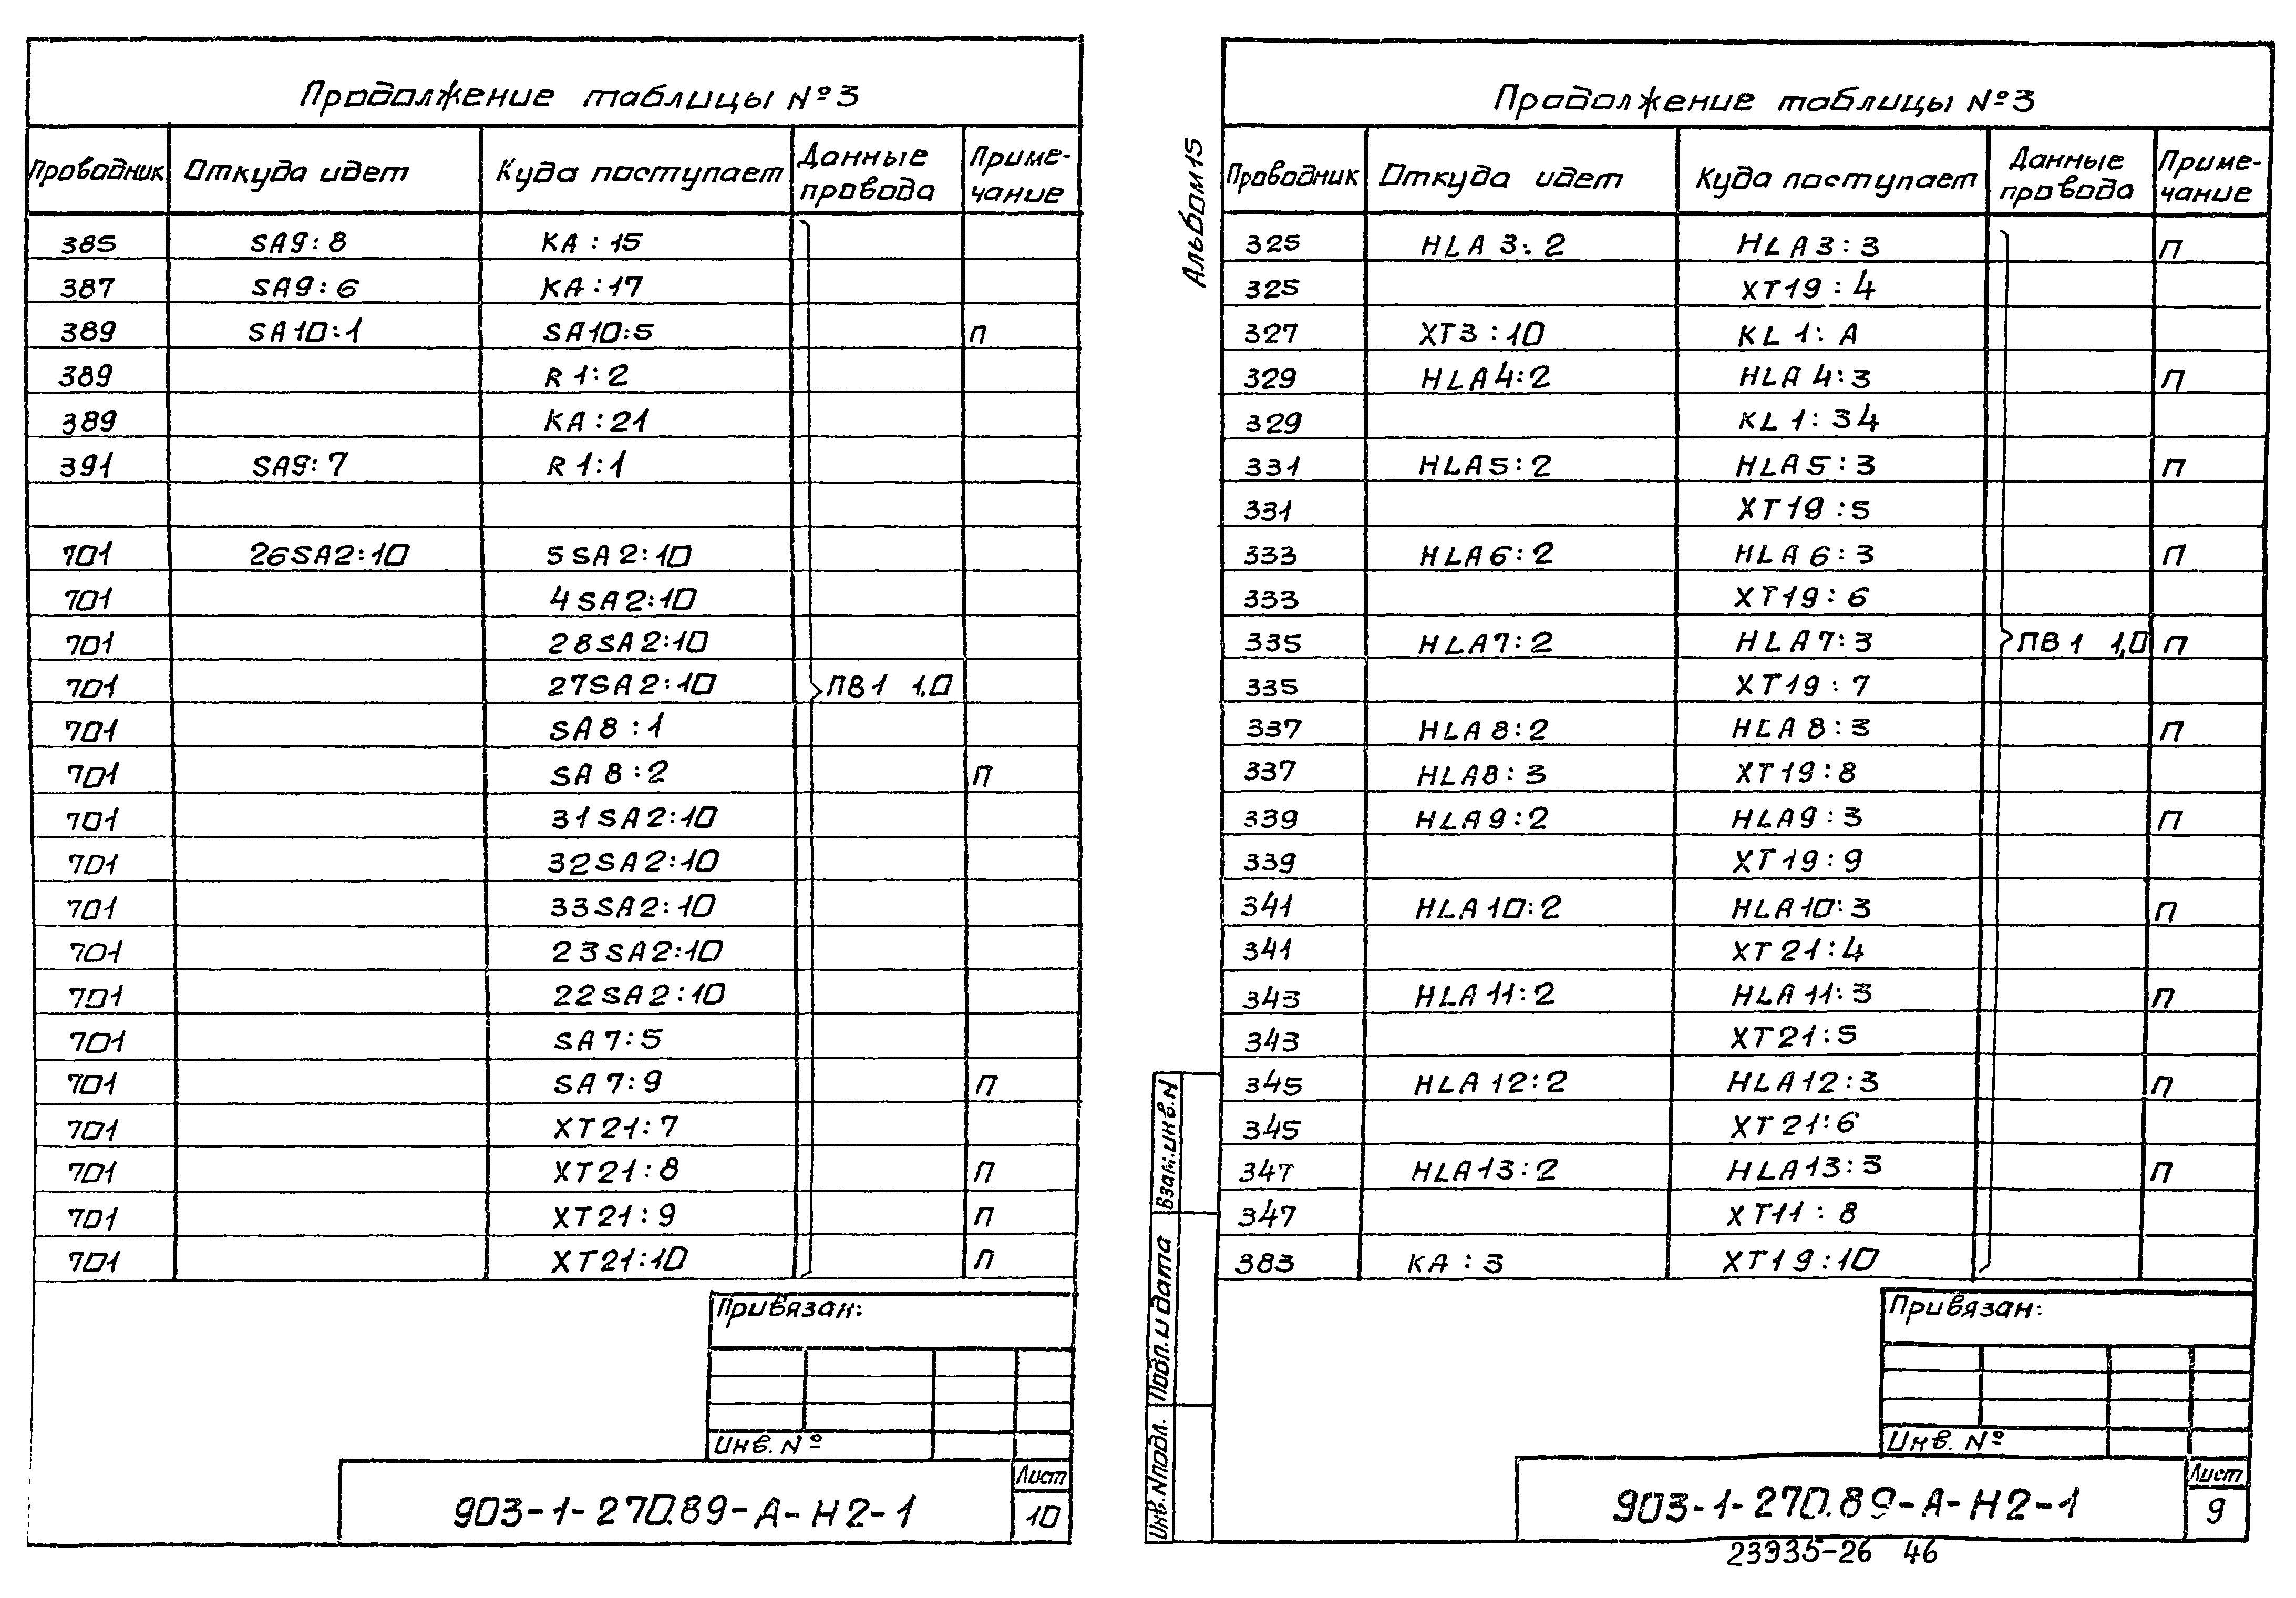 Продолжение таблицы №3
Проводник Откуда идет Куда поступает Данные провода Примечание
385 SA9:8 KA:15
387 SA9:6 KA:17
389 SA10:1 SA10:5 П
389 R1:2
389 KA:21
391 SA9:7 R1:1
701 26SA2:10 5SA2:10
701 4SA2:10
701 28SA2:10
701 27SA2:10 ПВ1 1,0
701 SA8:1
701 SA8:2 П
701 31SA2:10
701 32SA2:10
701 33SA2:10
701 23SA2:10
701 22SA2:10
701 SA7:5
701 SA7:9 П
701 XT21:7
701 XT21:8 П
701 XT21:9 П
701 XT21:10 П
Привязан:
Инв. №
903-1-270.89-А-Н2-1
Лист
10
Альбом 15
Продолжение таблицы №3
Проводник Откуда идет Куда поступает Данные провода Примечание
325 HLA3:2 HLA3:3 П
325 XT19:4
327 XT3:10 KL1:A
329 HLA4:2 HLA4:3 П
329 KL1:34
331 HLA5:2 HLA5:3 П
331 XT19:5
333 HLA6:2 HLA6:3 П
333 XT19:6
335 HLA7:2 HLA7:3 ПВ1 1,0 П
335 XT19:7
337 HLA8:2 HLA8:3 П
337 HLA8:3 XT19:8
339 HLA9:2 HLA9:3 П
339 XT19:9
341 HLA10:2 HLA10:3 П
341 XT21:4
343 HLA11:2 HLA11:3 П
343 XT21:5
345 HLA12:2 HLA12:3 П
345 XT21:6
347 HLA13:2 HLA13:3 П
347 XT11:8
383 KA:3 XT19:10
Взам.инв.N
Подп. и дата
Инв. N подл.
Привязан:
Инв. №
903-1-270.89-А-Н2-1
Лист
9
23935-26 46